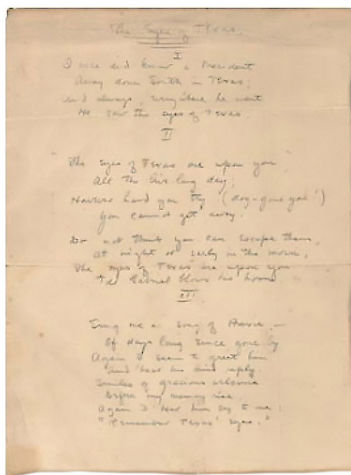 The Eyes of Texas.
I
I once did know a President
Away down South in Texas;
And always, everywhere he went
He saw the eyes of Texas.
II
"The eyes of Texas are upon you
All the live long day;
However hard you try (dog-gone you!)
You cannot get away.
Do not think you can escape them,
At night or early in the morn,
The eyes of Texas are upon you
'till Gabriel blows his horn.
III
Sing me a song of Prexie,—
Of days long since gone by
Again I seem to greet him
And hear his kind reply.
Smiles of gracious welcome
Before my memory rise,
Again I hear him say to me;
"Remember Texas' eyes."